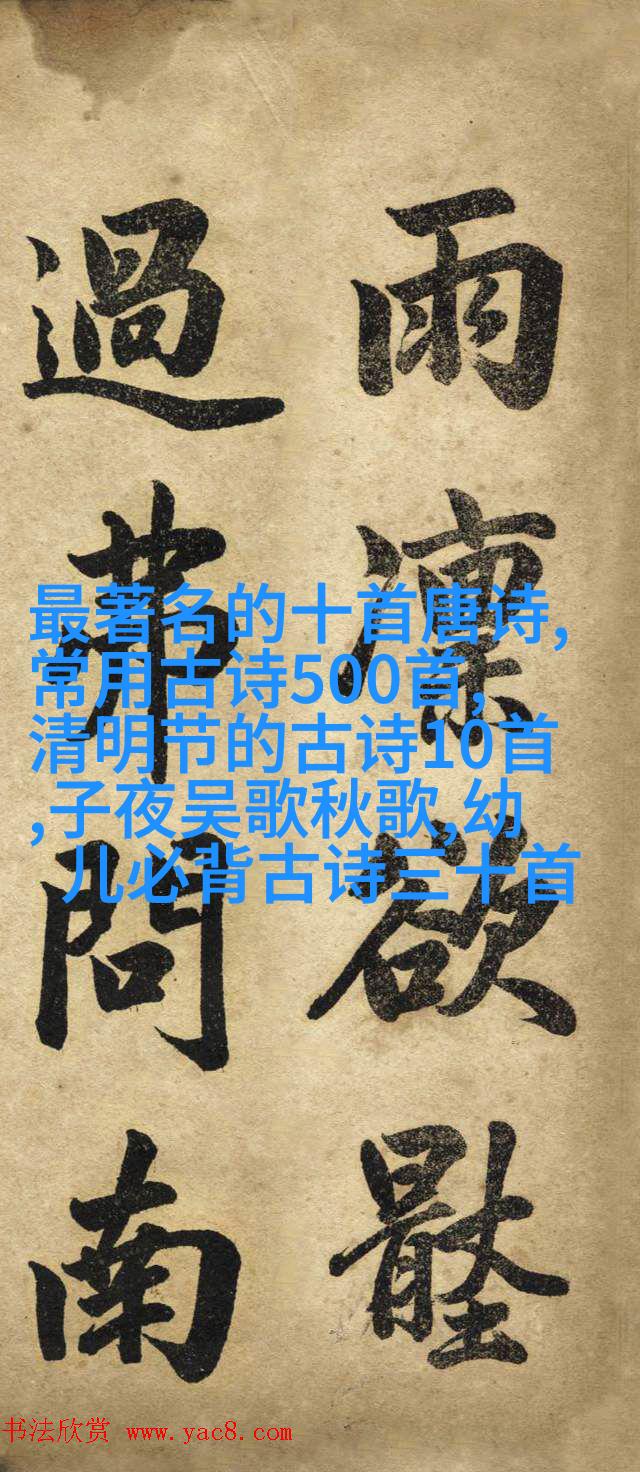 雨凛欲
過問南
最著名的十首唐诗,
常用古诗500首,
清明节的古诗10首
,子夜吴歌秋歌,幼
儿必背古诗三十首
书法欣赏 www.yac8.com